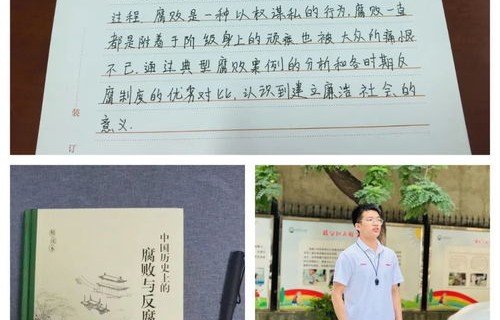 过程. 腐败是一种以权谋私的行为. 腐败一直
都是附着于阶级身上的顽疾也被大众所痛恨
不已. 通过典型腐败案例的分析和各时期反
腐制度的优劣对比, 认识到建立廉洁社会的
意义.
装
订
中国历史上的
腐败与反腐